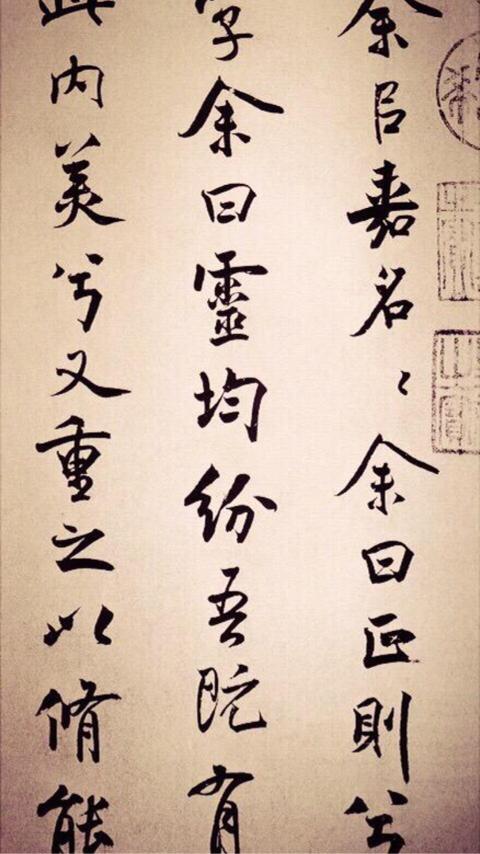 余㠯嘉名〻余曰正則兮
字余曰靈均紛吾既有
此内美兮又重之以脩能